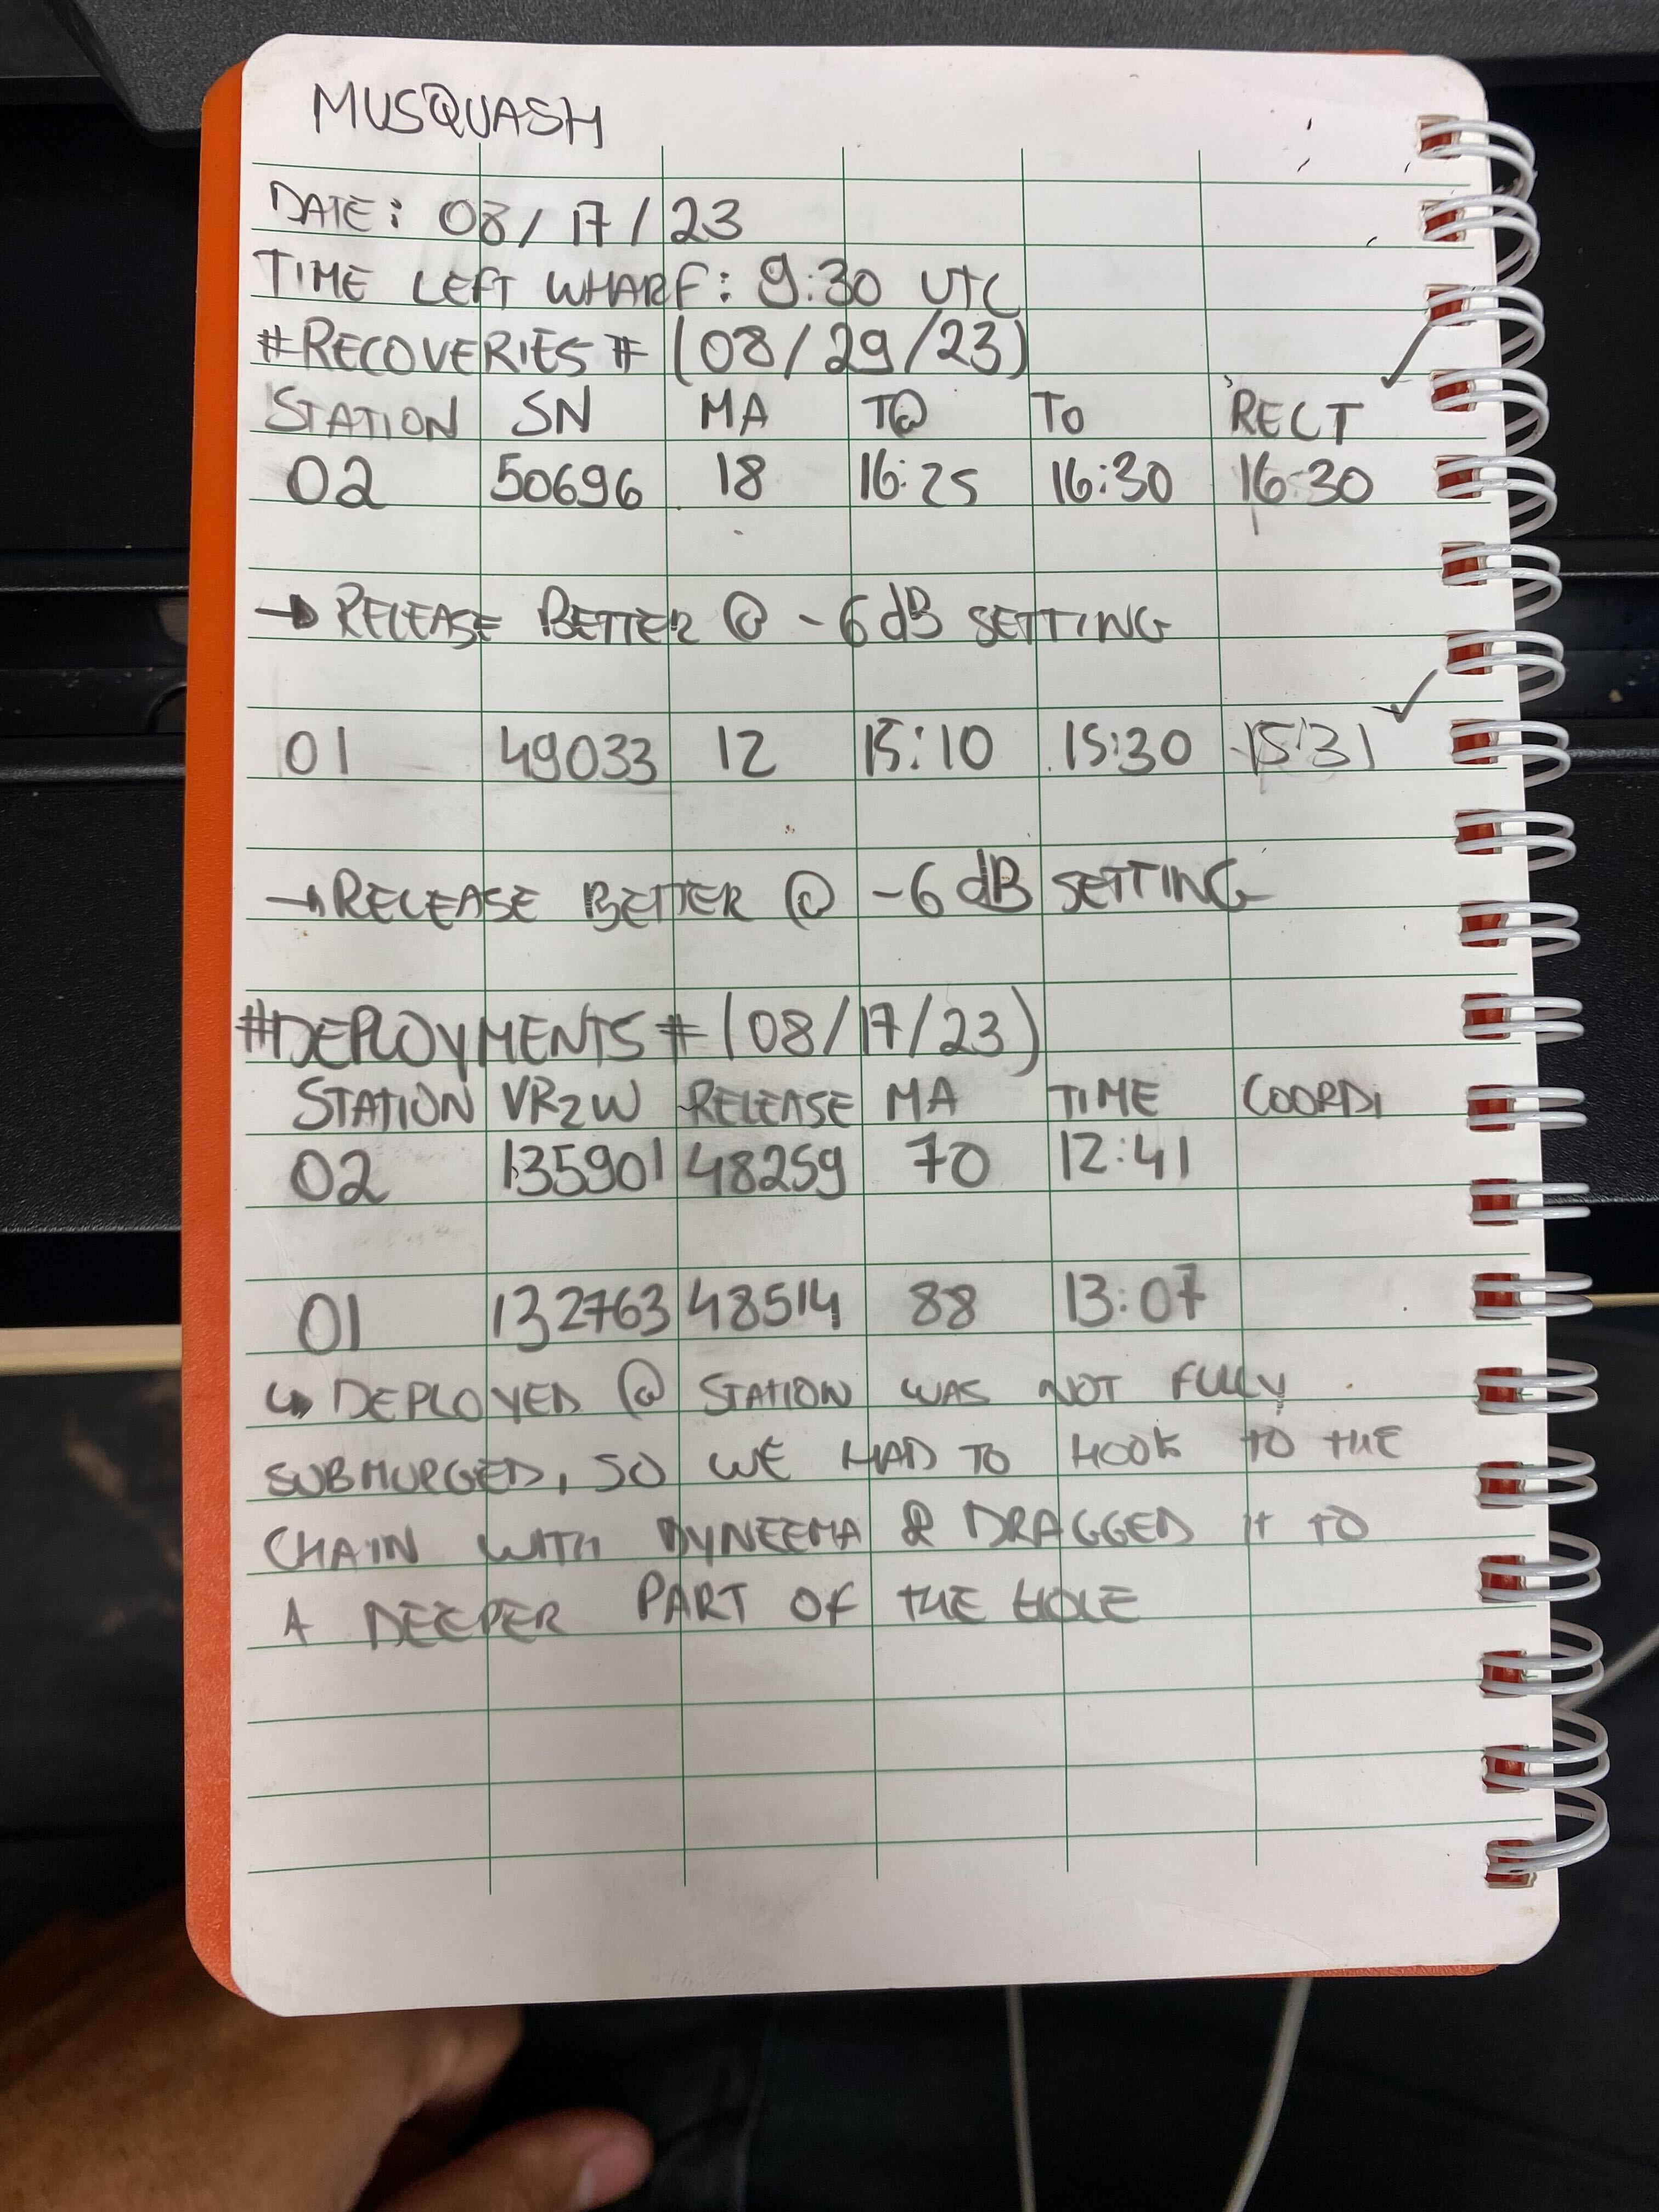 MUSQUASH
DATE: 08/17/23
TIME LEFT WHARF: 9:30 UTC
#RECOVERIES# (08/29/23)
STATION SN MA T@ TO RECT ✓
02 50696 18 16:25 16:30 16:30
→ RELEASE BETTER @ -6dB SETTING
01 49033 12 15:10 15:30 15:31 ✓
→ RELEASE BETTER @ -6dB SETTING
#DEPLOYMENTS# (08/17/23)
STATION VR2W RELEASE MA TIME COORDI
02 135901 48259 70 12:41
01 132763 48514 88 13:07
↳ DEPLOYED @ STATION WAS NOT FULLY
SUBMURGED, SO WE HAD TO HOOK TO THE
CHAIN WITH DYNEEMA & DRAGGED IT TO
A DEEPER PART OF THE HOLE